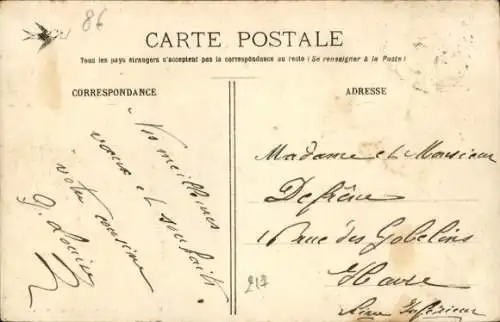 86
CARTE POSTALE
Tous les pays étrangers n'acceptent pas la correspondance au recto (Se renseigner à la Poste)
CORRESPONDANCE
ADRESSE
Nos meilleurs
vœux et souhaits.
votre cousine
G. Louise
Madame et Monsieur
Defrêne
16 rue des Gobelins
Havre
Seine Inférieure
217